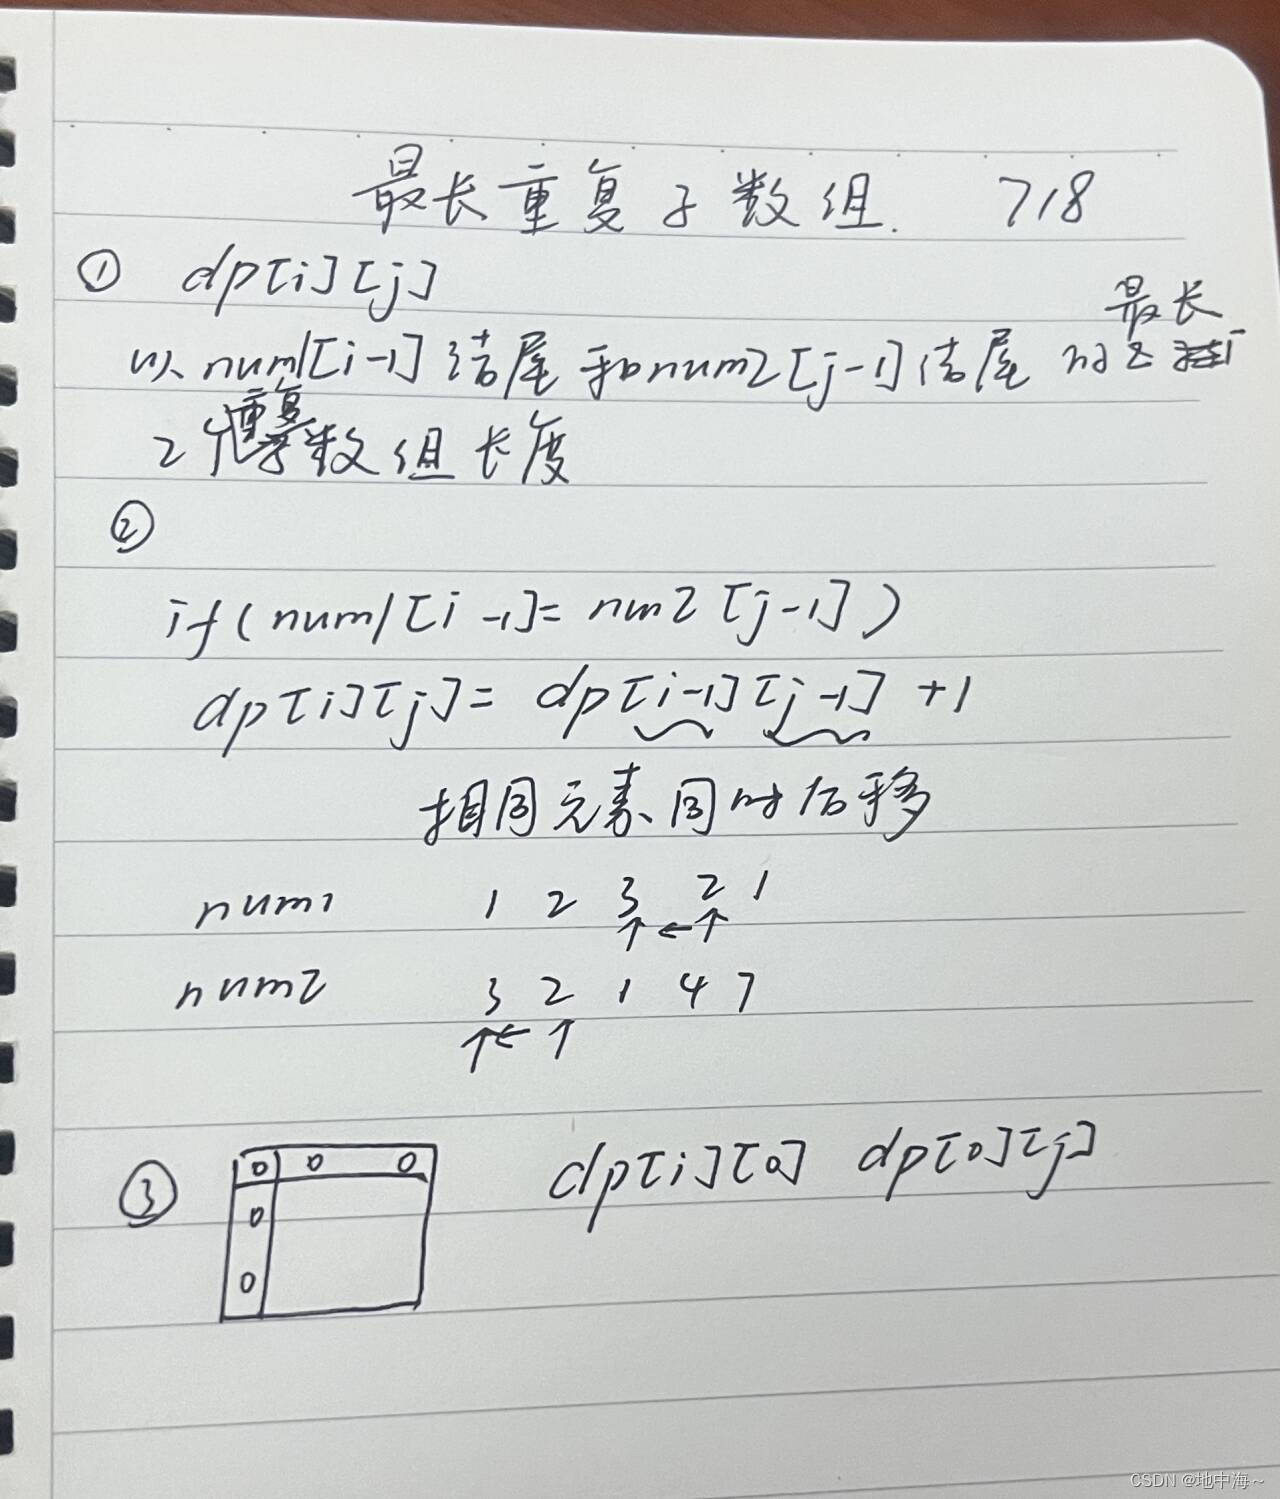 最长重复子数组. 718
① dp[i][j]
最长
以 num1[i-1] 结尾 和num2[j-1]结尾 的
重复
2个 数组长度
②
if(num1[i-1]= num2[j-1])
dp[i][j]= dp[i-1][j-1] +1
相同元素同时后移
num1 1 2 3 2 1
↑ ← ↑
num2 3 2 1 4 7
↑ ← ↑
③ 0 0 0 dp[i][0] dp[0][j]
0
0
CSDN @地中海~